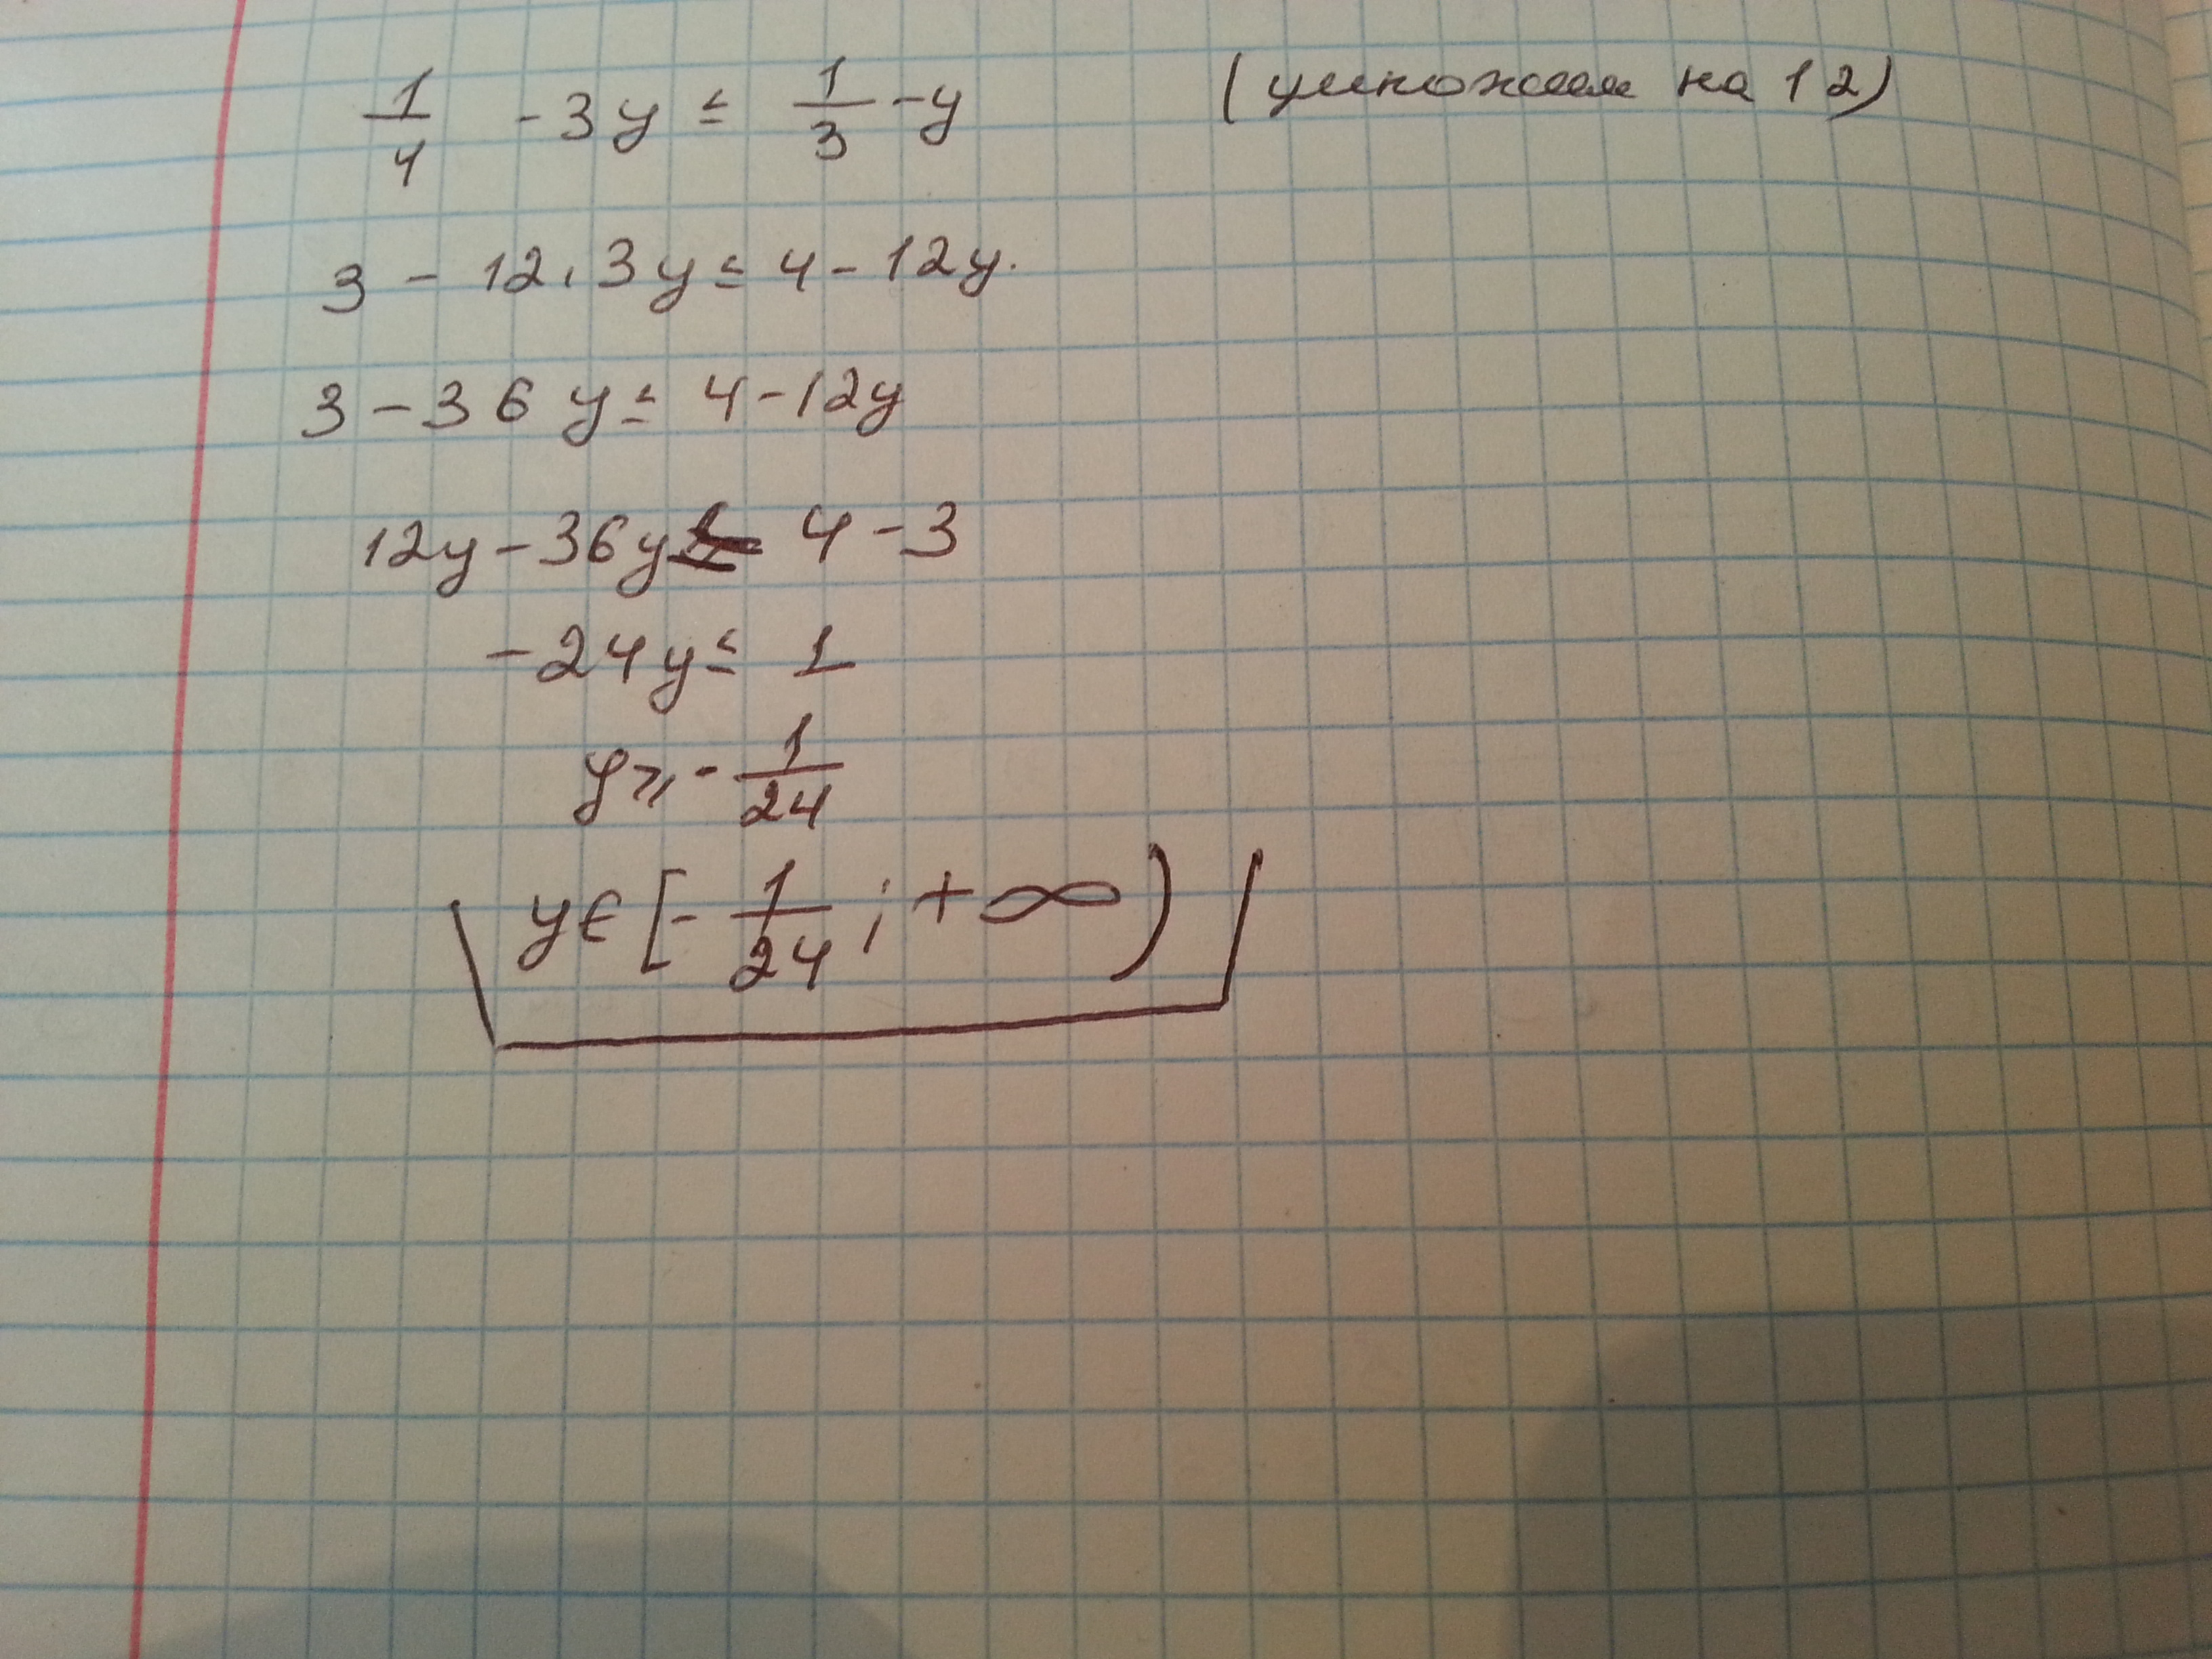 1/4 - 3y ≤ 1/3 - y (умножим на 12)
3 - 12 · 3y ≤ 4 - 12y.
3 - 36y ≤ 4 - 12y
12y - 36y ≤ 4 - 3
-24y ≤ 1
y ⩾ - 1/24
y ∈ [- 1/24 ; +∞)